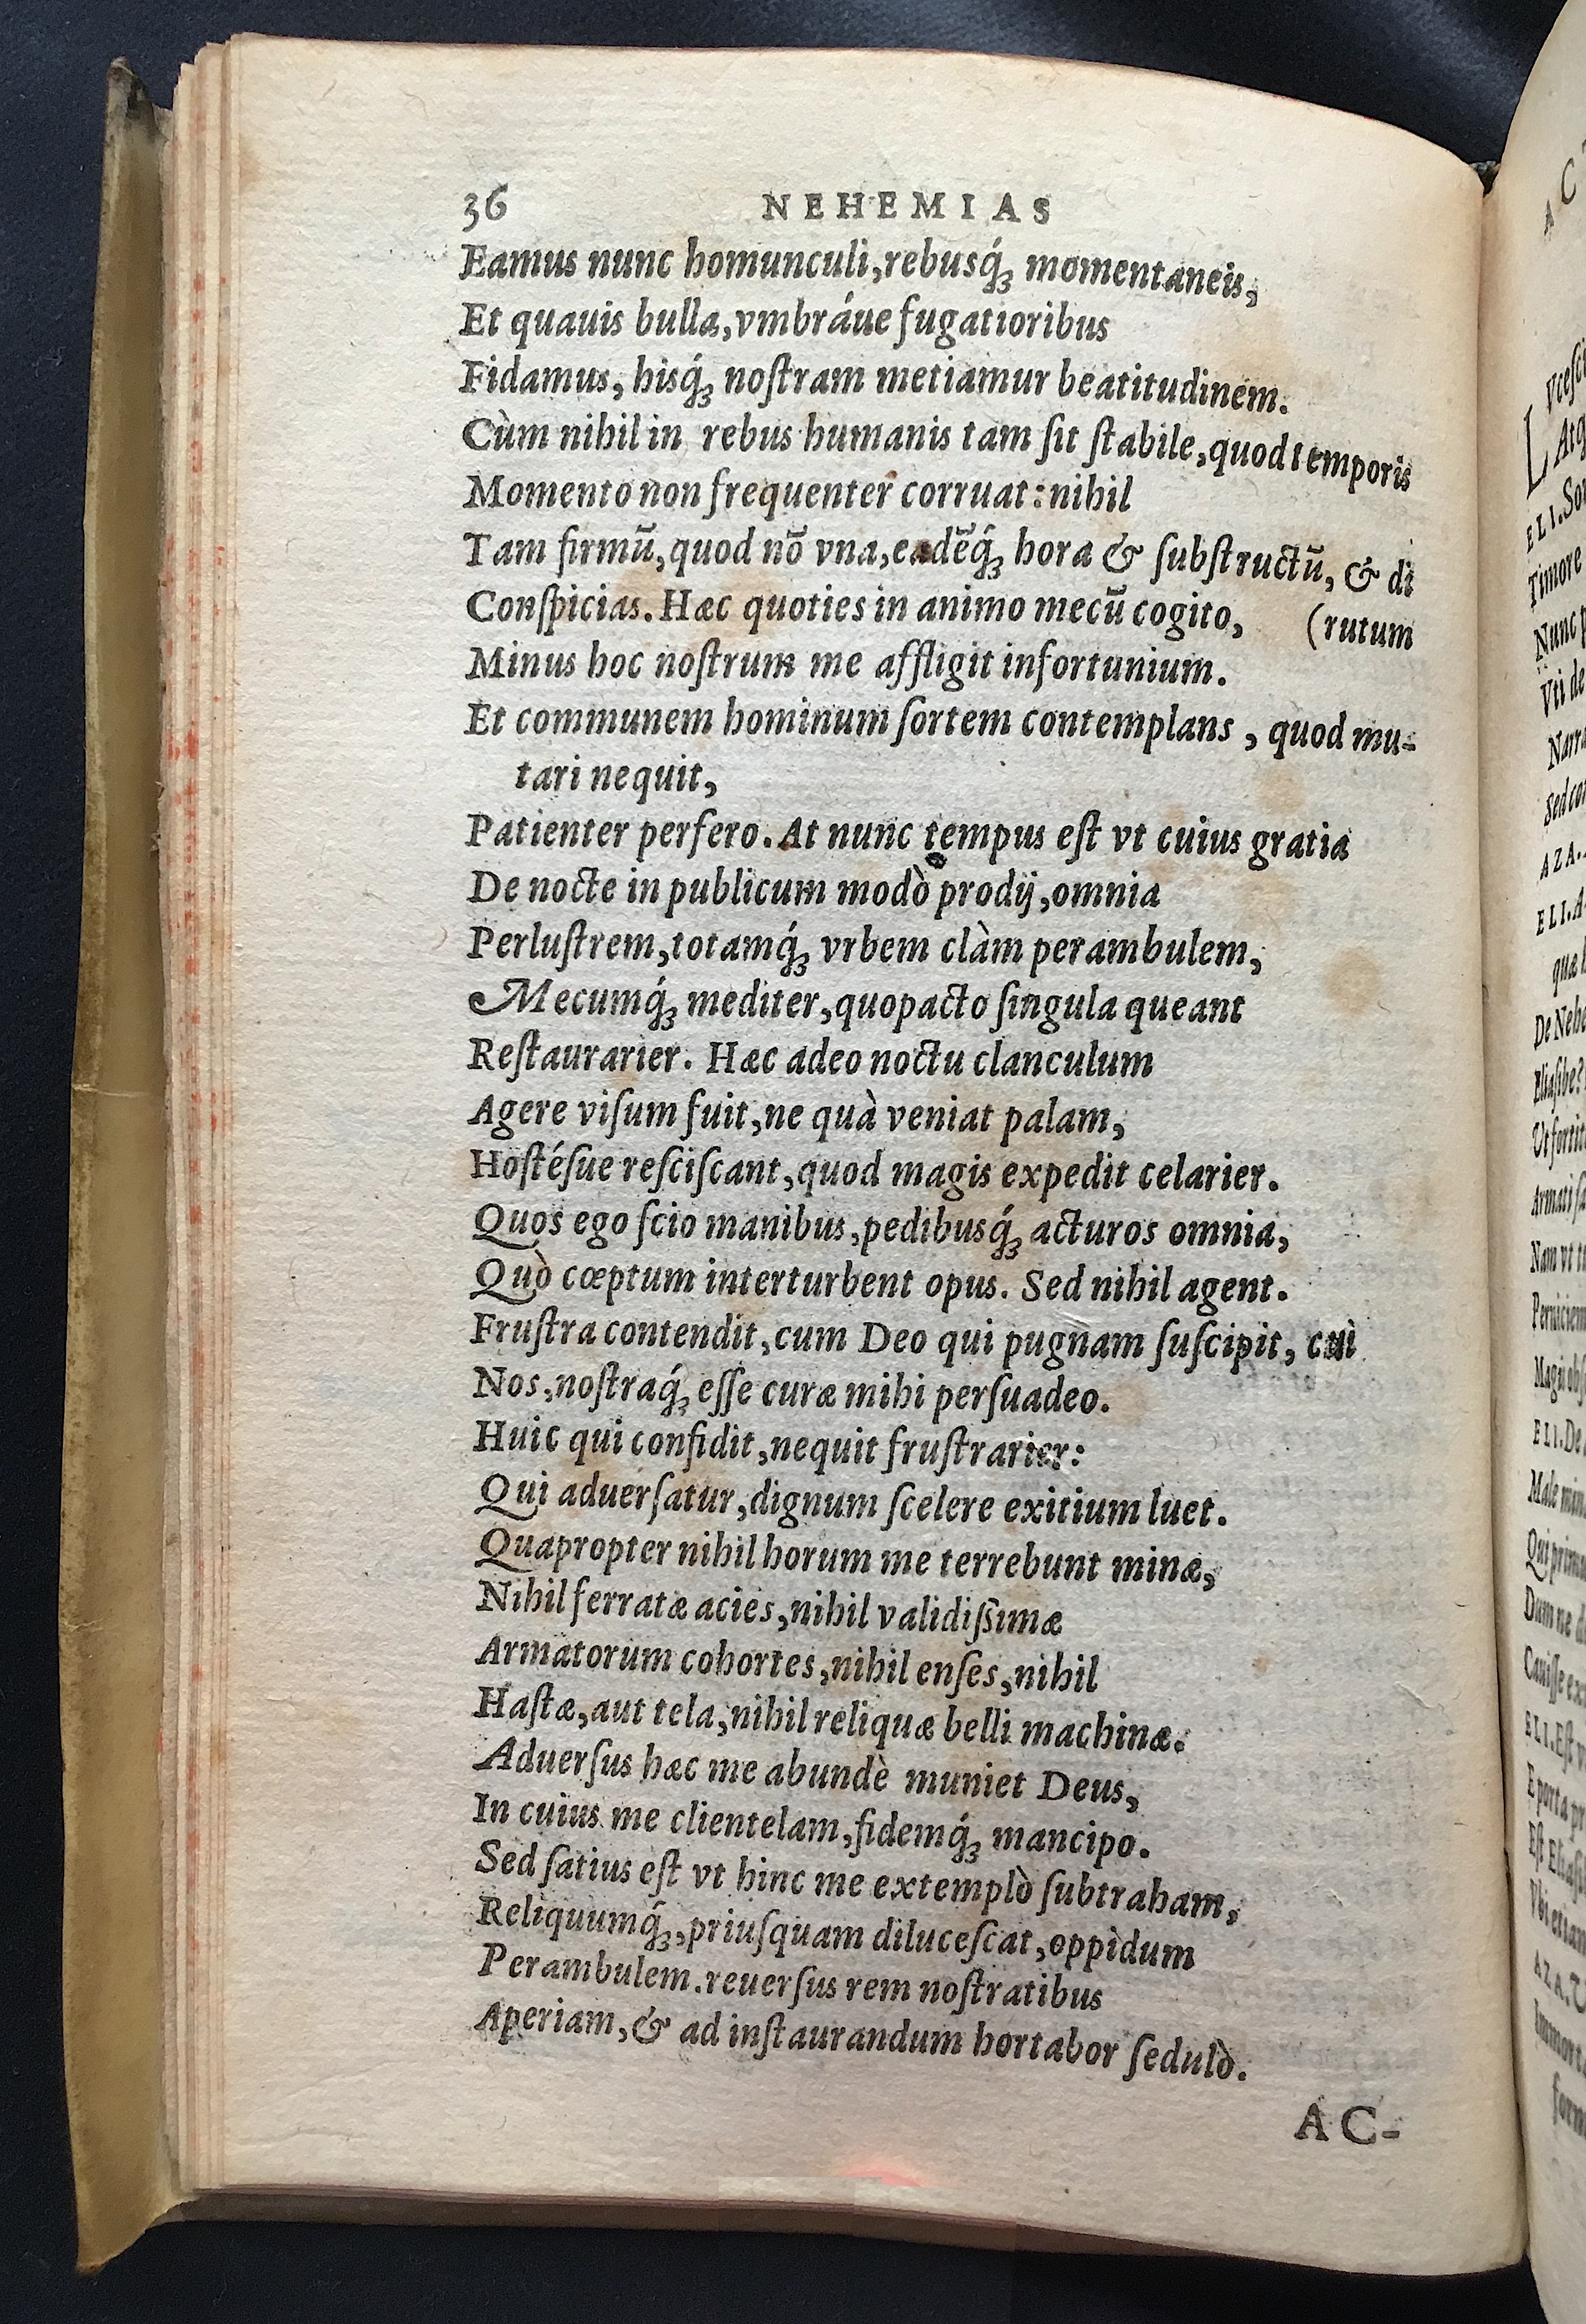 36 NEHEMIAS
Eamus nunc homunculi, rebusq́ꝫ momentaneis,
Et quauis bulla, vmbráue fugatioribus
Fidamus, hisq́ꝫ noſtram metiamur beatitudinem.
Cùm nihil in rebus humanis tam ſit ſtabile, quod temporis
Momento non frequenter corruat: nihil
Tam firmū, quod nō vna, eadēq́ꝫ hora & ſubſtructū, & di
Conſpicias. Hæc quoties in animo mecū cogito, (rutum
Minus hoc noſtrum me affligit infortunium.
Et communem hominum ſortem contemplans, quod mu-
tari nequit,
Patienter perfero. At nunc tempus eſt vt cuius gratia
De nocte in publicum modò prodij, omnia
Perluſtrem, totamq́ꝫ vrbem clàm perambulem,
Mecumq́ꝫ mediter, quopacto ſingula queant
Reſtaurarier. Hæc adeo noctu clanculum
Agere viſum fuit, ne quà veniat palam,
Hoſtéſue reſciſcant, quod magis expedit celarier.
Quos ego ſcio manibus, pedibusq́ꝫ acturos omnia,
Quò cœptum interturbent opus. Sed nihil agent.
Fruſtra contendit, cum Deo qui pugnam ſuſcipit, cui
Nos, noſtraq́ꝫ eſſe curæ mihi perſuadeo.
Huic qui confidit, nequit fruſtrarier:
Qui aduerſatur, dignum ſcelere exitium luet.
Quapropter nihil horum me terrebunt minæ,
Nihil ferratæ acies, nihil validiſsimæ
Armatorum cohortes, nihil enſes, nihil
Haſtæ, aut tela, nihil reliquæ belli machinæ.
Aduerſus hæc me abundè muniet Deus,
In cuius me clientelam, fidemq́ꝫ mancipo.
Sed ſatius eſt vt hinc me extemplò ſubtraham,
Reliquumq́ꝫ, priuſquam diluceſcat, oppidum
Perambulem. reuerſus rem noſtratibus
Aperiam, & ad inſtaurandum hortabor ſedulò.
AC-
ELI.
Timore
Vti de
AZA.
ELI.
De Nehe
Eliaſibe?
Armati
Nam vt
Magis
ELI. De
Male
Dum ne
ELI. Eſt
E porta
Eſt
AZA.